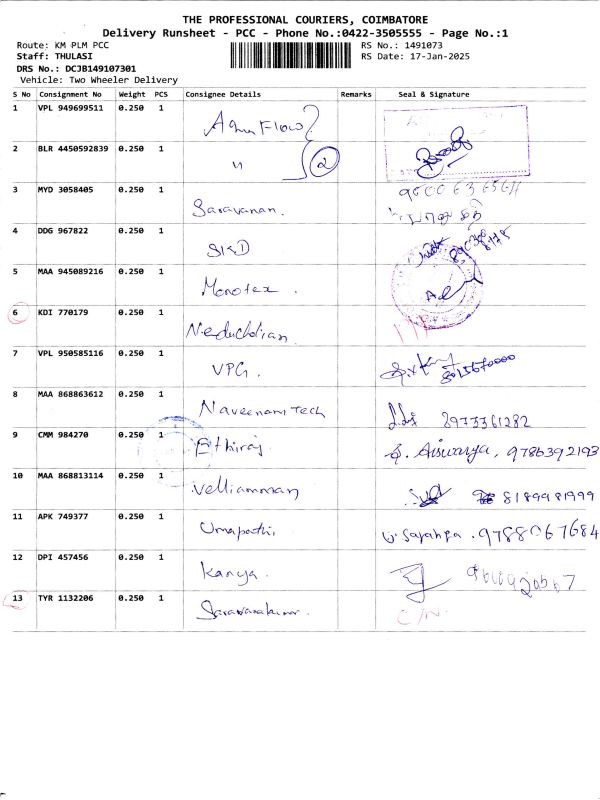 THE PROFESSIONAL COURIERS, COIMBATORE
Delivery Runsheet - PCC - Phone No.:0422-3505555 - Page No.:1
Route: KM PLM PCC RS No.: 1491073
Staff: THULASI RS Date: 17-Jan-2025
DRS No.: DCJB149107301
Vehicle: Two Wheeler Delivery
S No Consignment No Weight PCS Consignee Details Remarks Seal & Signature
1 VPL 949699511 0.250 1 Aqua Flow
2 BLR 4450592839 0.250 1 " 2
3 MYD 3058405 0.250 1 Saravanan.
4 DDG 967822 0.250 1 SKD
5 MAA 945089216 0.250 1 Monotex.
6 KDI 770179 0.250 1 Neduchdian.
7 VPL 950585116 0.250 1 VPG.
8 MAA 868863612 0.250 1 Naveenam Tech 8973361282
9 CMM 984270 0.250 1 Ethiraj S. Aiswarya, 9786392193
10 MAA 868813114 0.250 1 Velliamman 8189981999
11 APK 749377 0.250 1 Umapathi 9788067684
12 DPI 457456 0.250 1 Kanya.
13 TYR 1132206 0.250 1 Saravanakumar. C/N.